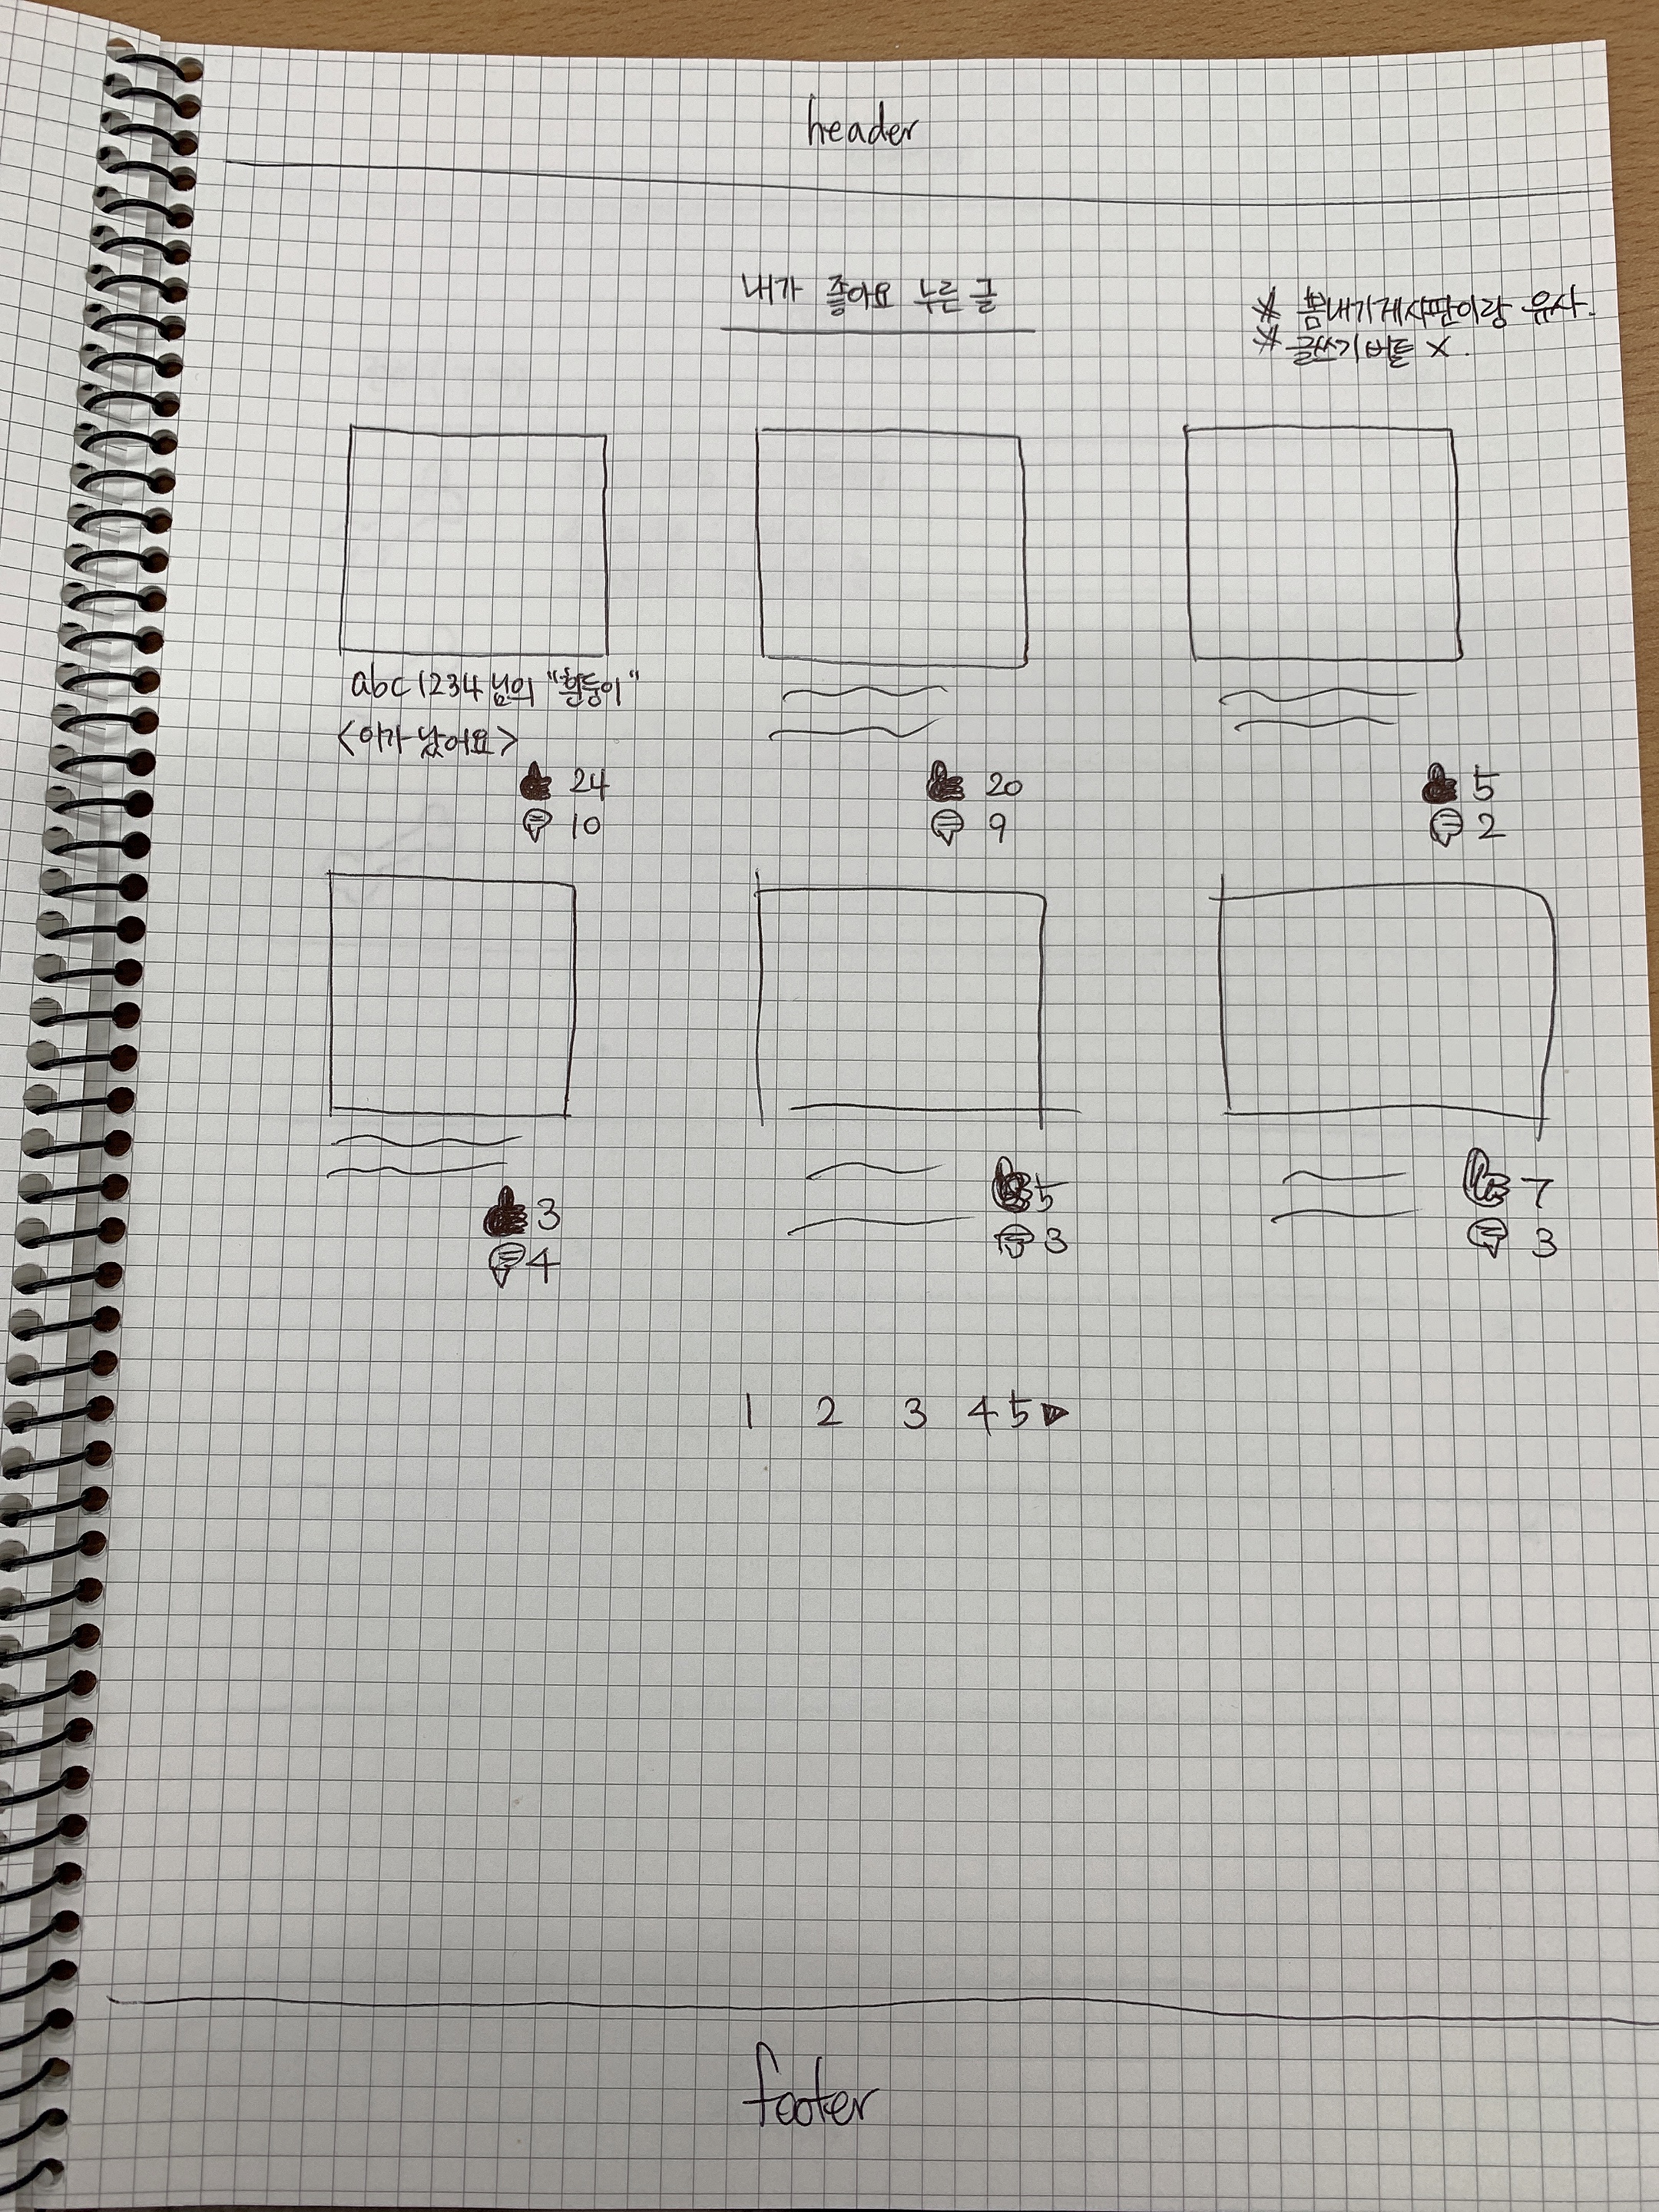 header
내가 좋아요 누른 글
※ 봄내기게시판이랑 유사.
※ 글쓰기 버튼 X.
abc1234 님의 "흰둥이"
<아가 났어요>
24
20
5
10
9
2
3
5
7
4
3
3
1 2 3 4 5 ▶
footer